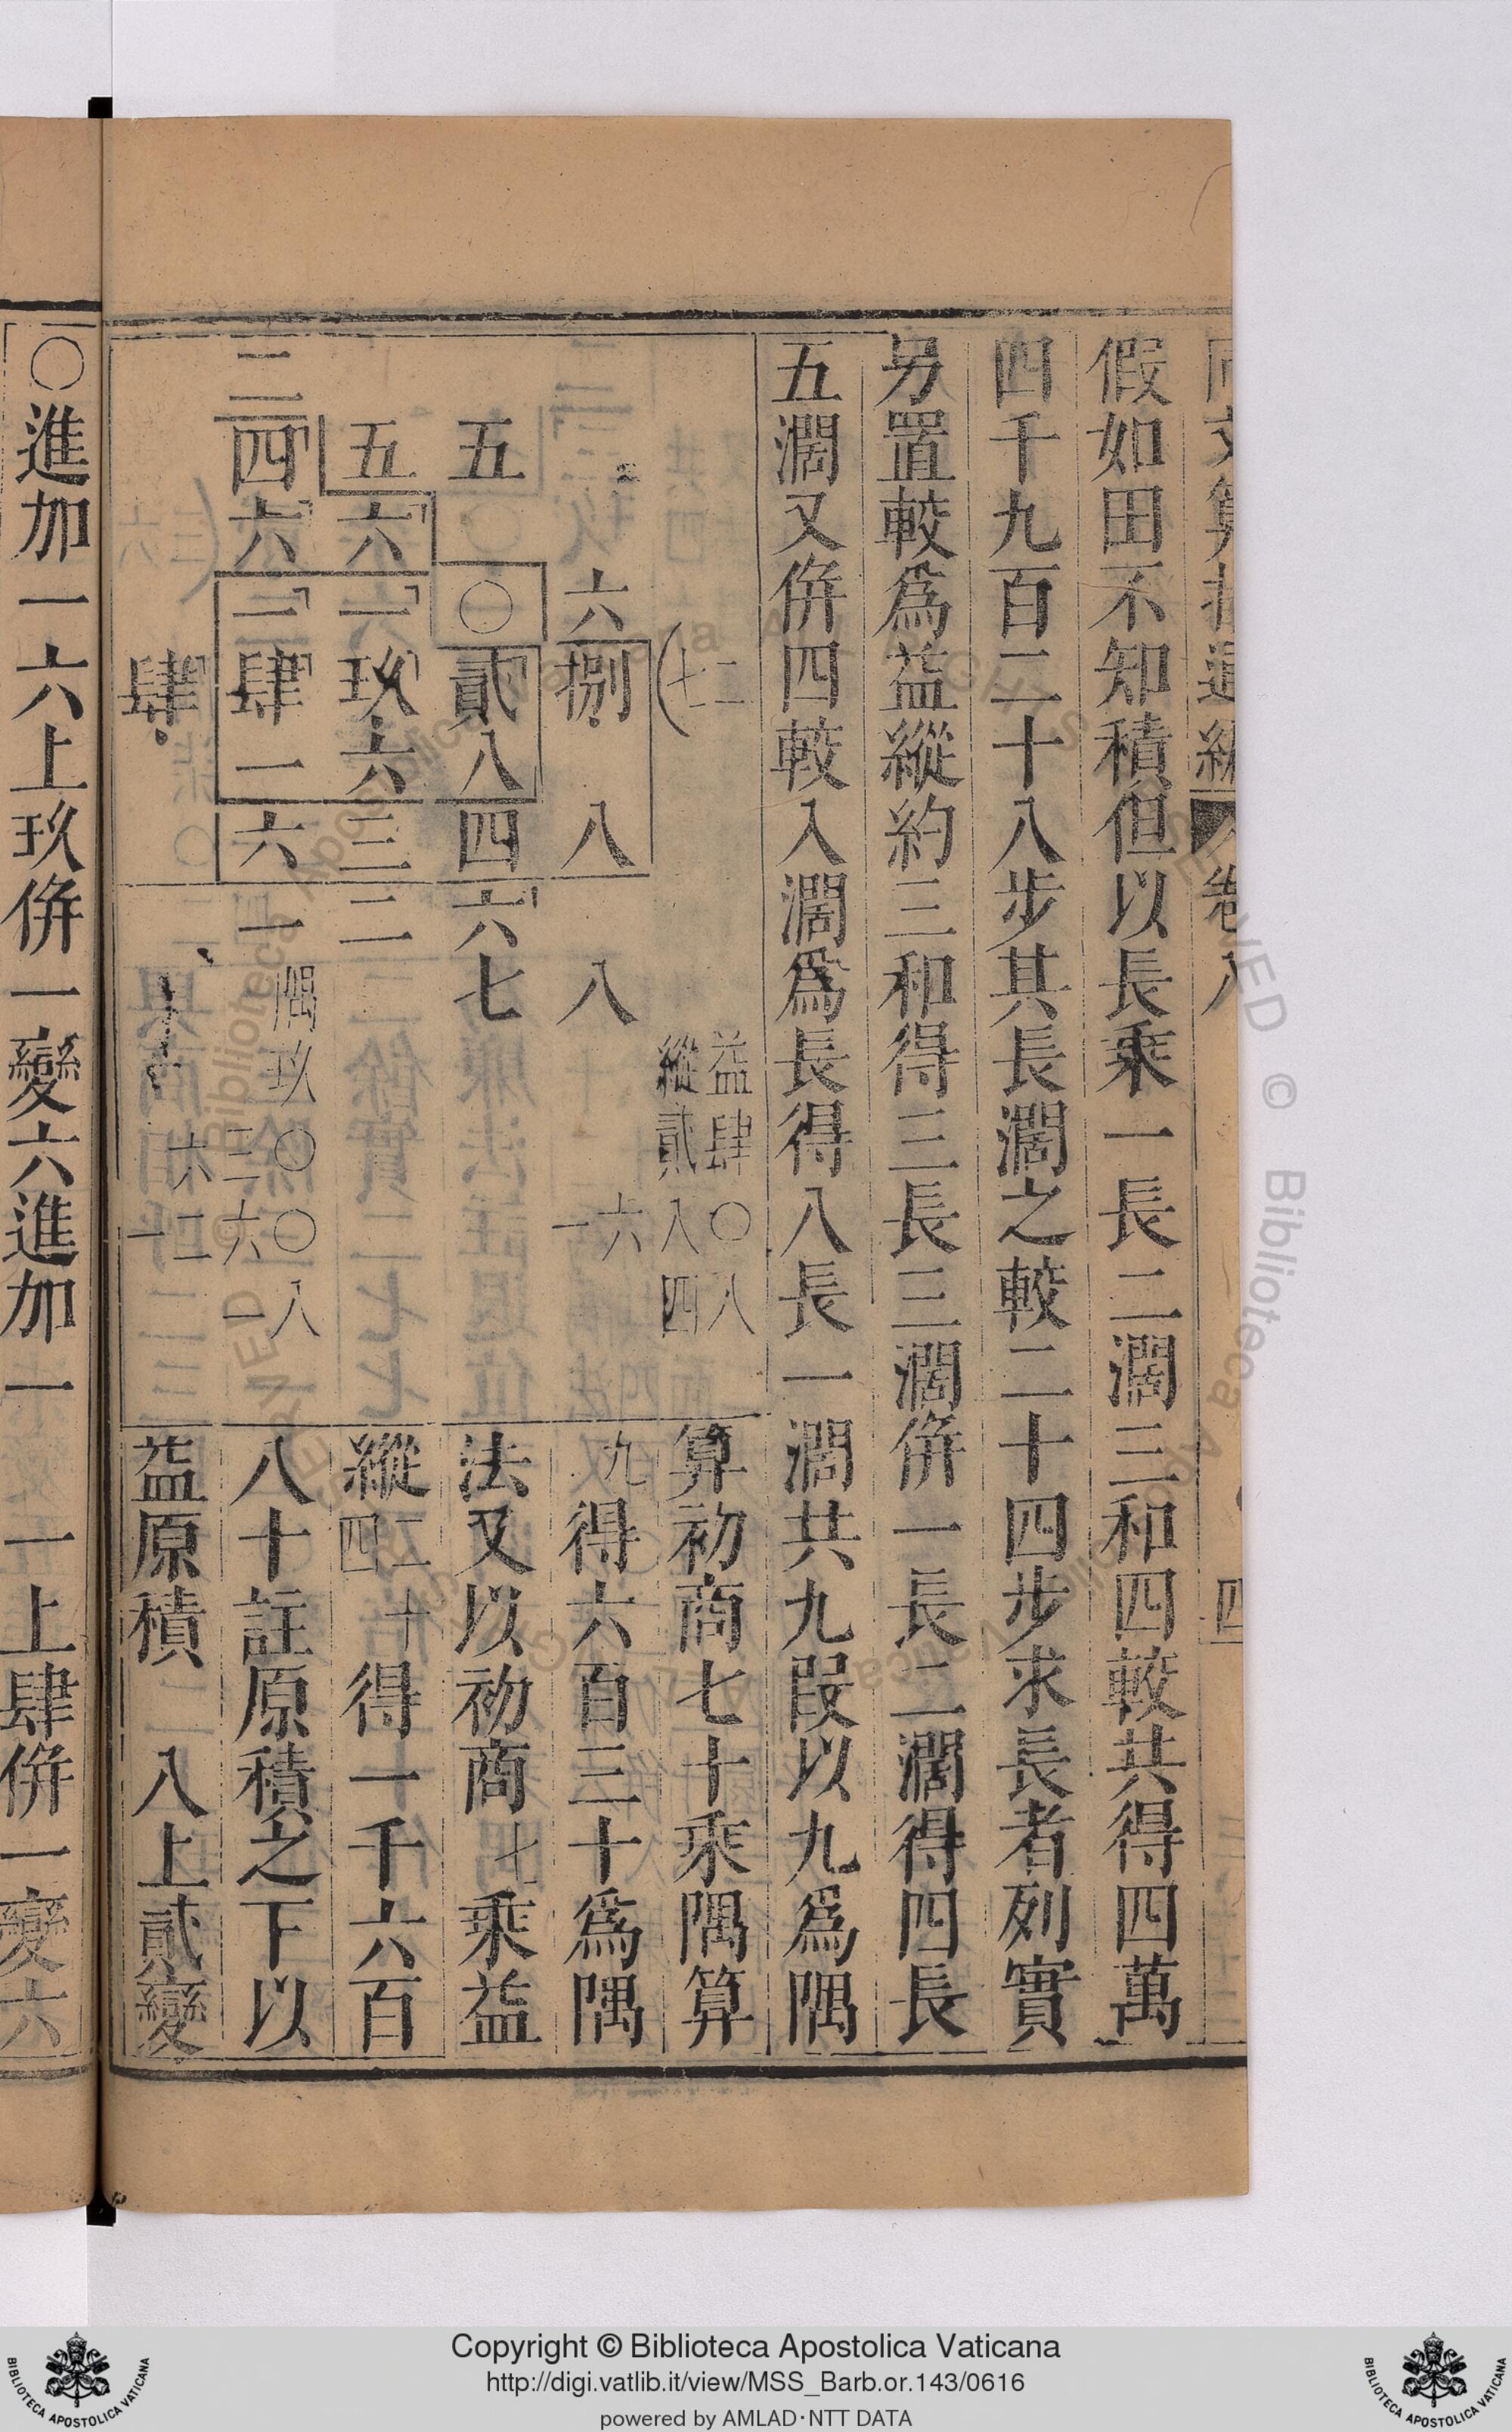 假如田不知積但以長乘一長二濶三和四較共得四萬
四千九百二十八步其長濶之較二十四步求長者列實
另置較爲益縱約三和得三長三濶併一長二濶得四長
五濶又併四較入濶爲長得八長一濶共九段以九爲隅
算初商七十乘隅算
九得六百三十爲隅
法又以初商七十乘益
縱二十四得一千六百
八十註原積之下以
益原積 八上貳變
七二
六捌八八
五〇貳八四六七
五六一玖六三二
三四六三肆一六一
肆
益肆〇八
縱貳八四
六一
隅玖〇〇八
三六一
六二一
〇進加一六上玖併一變六進加一 一上肆併一變六
四
Copyright © Biblioteca Apostolica Vaticana
http://digi.vatlib.it/view/MSS_Barb.or.143/0616
powered by AMLAD·NTT DATA
BIBLIOTECA APOSTOLICA VATICANA
BIBLIOTECA APOSTOLICA VATICANA